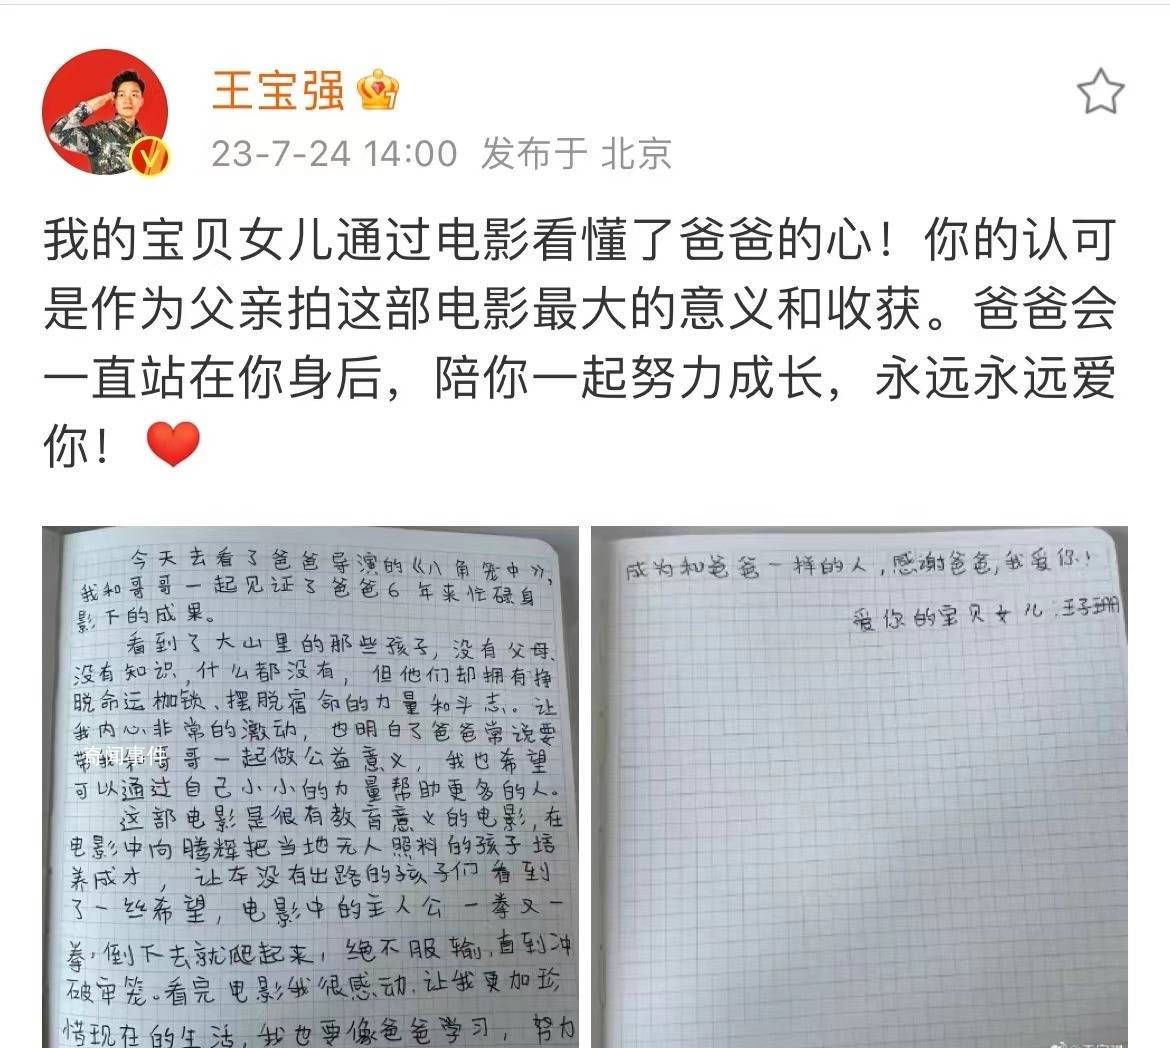 王宝强
23-7-24 14:00 发布于 北京
我的宝贝女儿通过电影看懂了爸爸的心！你的认可
是作为父亲拍这部电影最大的意义和收获。爸爸会
一直站在你身后，陪你一起努力成长，永远永远爱
你！
今天去看了爸爸导演的《八角笼中》，
我和哥哥一起见证了爸爸6年来忙碌身
影下的成果。
看到了大山里的那些孩子，没有父母、
没有知识，什么都没有，但他们却拥有挣
脱命运枷锁、摆脱宿命的力量和斗志。让
我内心非常的激动，也明白了爸爸常说要
带我和哥哥一起做公益意义，我也希望
奇闻事件
可以通过自己小小的力量帮助更多的人。
这部电影是很有教育意义的电影，在
电影中向腾辉把当地无人照料的孩子培
养成才，让本没有出路的孩子们看到
了一丝希望，电影中的主人公一拳又一
拳，倒下去就爬起来，绝不服输，直到冲
破牢笼。看完电影我很感动，让我更加珍
惜现在的生活，我也要像爸爸学习，努力
成为和爸爸一样的人，感谢爸爸，我爱你！
爱你的宝贝女儿：王子珊